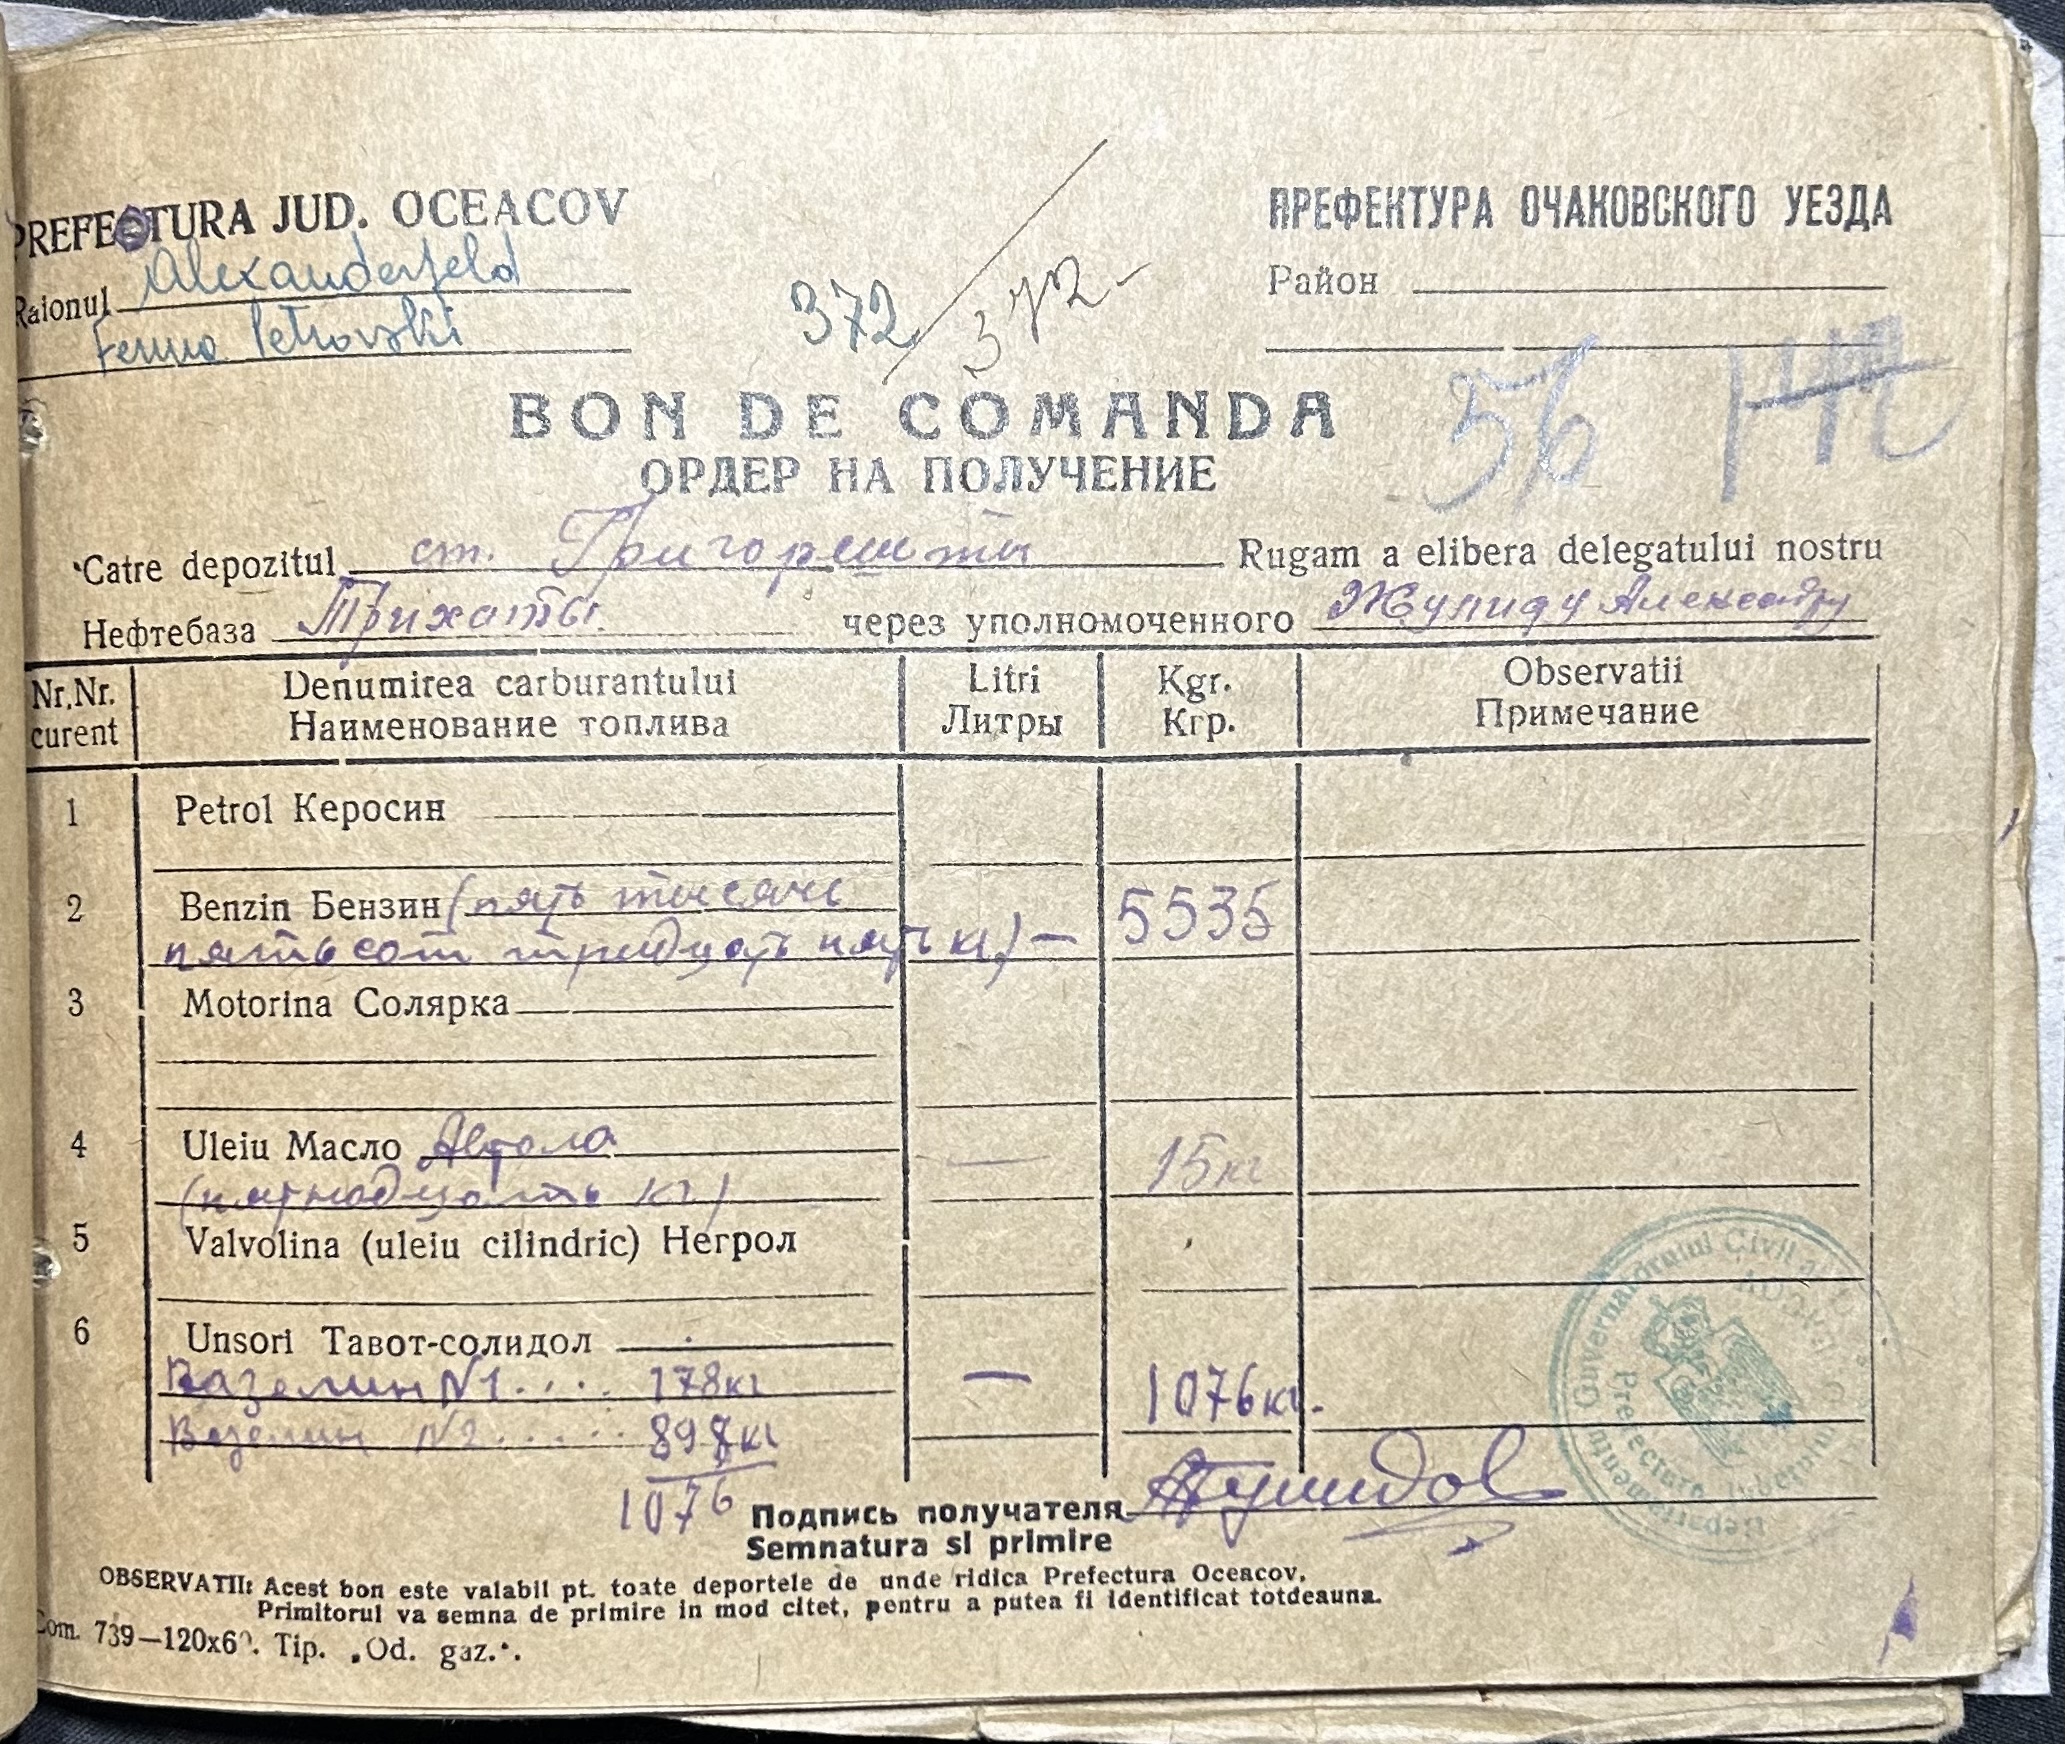 PREFECTURA JUD. OCEACOV
Raionul Alexanderfeld
Ferma Petrovski
372 / 372
ПРЕФЕКТУРА ОЧАКОВСКОГО УЕЗДА
Район
56
BON DE COMANDA
ОРДЕР НА ПОЛУЧЕНИЕ
Catre depozitul ст. Григорешты Rugam a elibera delegatului nostru
Нефтебаза Трихаты через уполномоченного Александру
Nr.Nr. curent Denumirea carburantului Litri Kgr. Observatii
Наименование топлива Литры Кгр. Примечание
1 Petrol Керосин
2 Benzin Бензин (пять тысячи 5535
пятьсот тридцать пять кг) —
3 Motorina Солярка
4 Uleiu Масло Автола — 15 кг
(пятнадцать кг)
5 Valvolina (uleiu cilindric) Негрол
6 Unsori Тавот-солидол
Вазелин №1 .... 178 кг — 1076 кг.
Вазелин №2 ..... 898 кг
1076
Подпись получателя
Semnatura si primire
OBSERVATII: Acest bon este valabil pt. toate deportele de unde ridica Prefectura Oceacov.
Primitorul va semna de primire in mod citet, pentru a putea fi identificat totdeauna.
Com. 739—120x60. Tip. „Od. gaz.".
Guvernamântului Civil al
Prefectura